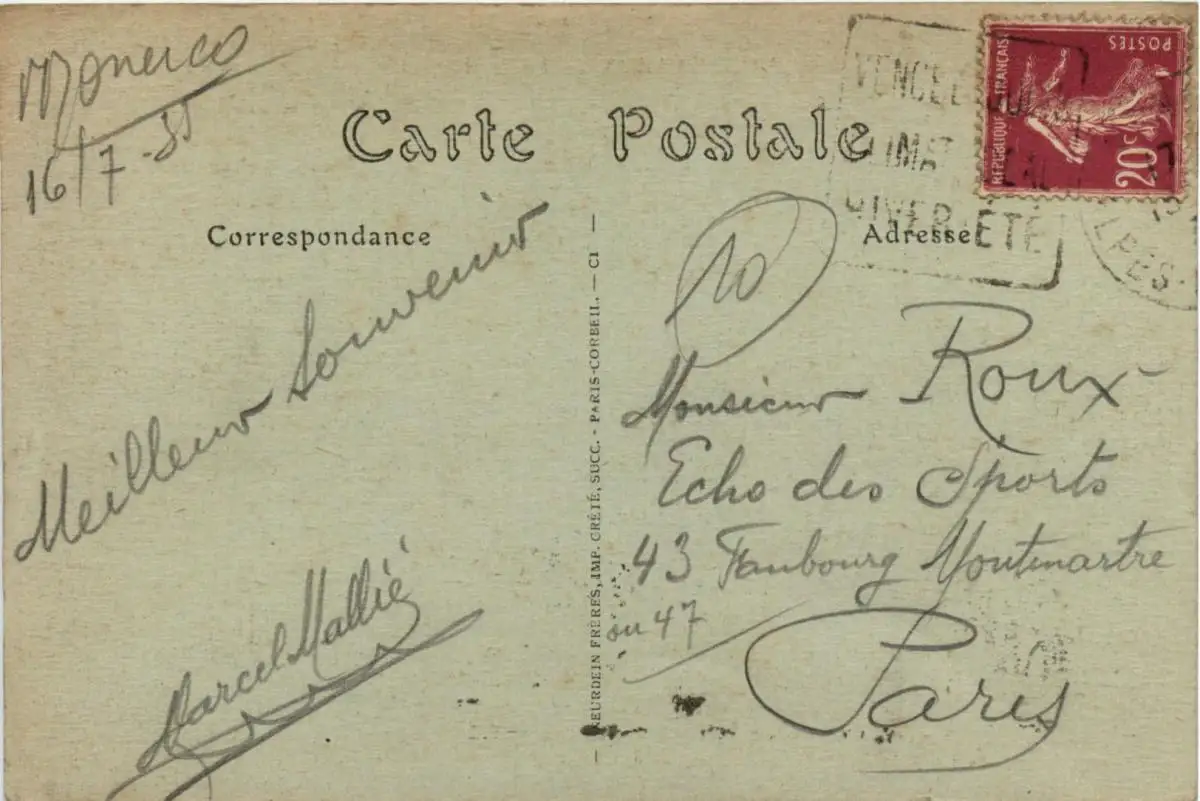 16/7-35
Carte Postale
Correspondance
Adresse
Meilleur Souvenir
Marcel Mallié
NEURDEIN FRÈRES, IMP. CRÉTÉ, SUCC. - PARIS-CORBEIL. — CI —
10
Monsieur Roux
Echo des Sports
43 Faubourg Montmartre
ou 47
Paris
POSTES
REPUBLIQUE FRANÇAISE
20c
VENCE
CLIMAT
HIVER ÉTÉ